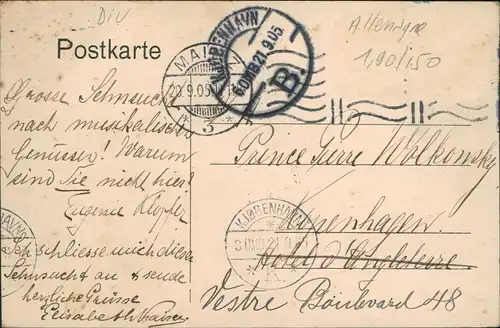 DIV
Allemagne
1,90/150
Postkarte
MAINZ
20.9.05
3
KJØBENHAVN
6.OMB 21.9.05
B.
Grosse Sehnsucht
nach musikalischen
Genüssen! Warum
sind Sie nicht hier?
Eugenie Klopfer
Ich schliesse mich dieser
Sehnsucht an & sende
herzliche Grüsse
Elisabeth Kaiser
Prince Pierre Wolkonsky
Kopenhagen.
Hotel d'Angleterre.
Vestre Boulevard 48
KJØBENHAVN
21.9.05